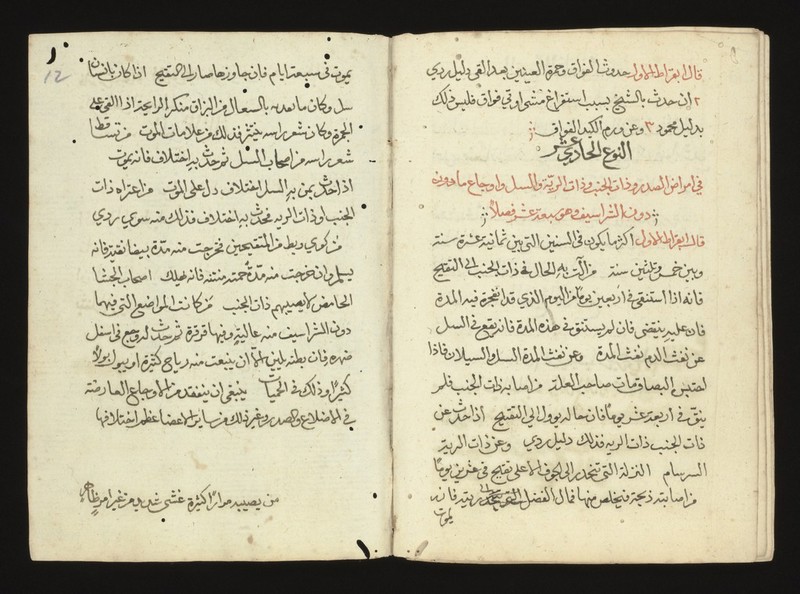 قال ابقراط الاول حدوث الفواق وحمرة العينين بعد القي دليل ردي
٢ ان حدث بالشيخ بسبب استفراغ مشي او قي فواق فليس ذلك
بدليل محمود ٣ وعن ورم الكبد الفواق
النوع الحادي عشر
في امراض الصدر وذات الجنب وذات الرية والسل واوجاع ما دون
دون الشراسيف وهي سبعة عشر فصلا
قال ابقراط الاول اكثر ما يكون في السنين التي بين ثمانية عشرة سنة
وبين خمس وثلثين سنة من آلت به الحال في ذات الجنب الى التقيح
فانه اذا استنقى في اربعين يوما من اليوم الذي قد انفجرة فيه المدة
فان عليه ينقضي فان لم يستنق في هذه المدة فانه يقع في السل
عن نفث الدم نفث المدة وعن نفث المدة السل والسيلان فاذا
احتبس البصاق مات صاحب العلة من اصابه ذات الجنب فلم
ينق في اربعة عشر يوما فان حاله يوول الى التقيح اذا حدث عن
ذات الجنب ذات الريه فذلك دليل ردي وعن ذات الرية
السرسام النزلة التي تنحدر الى الجوف الاعلى تقيح في عشرين يوما
من اصابته ذبحة فتخلص منها فمال الفضل الى ريته فانه
يموت
يموت في سبعة ايام فان جاوزها صار الى التقيح اذا كان بانسان
سل وكان ما يقذفه بالسعال من البزاق منكر الرايحة اذا القي على
الجمرة وكان شعر راسه ينتثر فذلك من علامات الموت من تساقط
شعر راسه من اصحاب السل ثم حدث به اختلاف فانه يموت
اذا حدث بمن به السل اختلاف دل على الموت من اعتراه ذات
الجنب او ذات الريه فحدث به اختلاف فذلك منه سوء ردي
من كوي او بط من المتقيحين فخرجت منه مدة بيضا نقية فانه
يسلم وان خرجت منه مدة حمئة منتنة فانه يهلك اصحاب الجشا
الحامض لا يصيبهم ذات الجنب من كانت المواضع التي فيما
دون الشراسيف منه عالية وفيها قرقرة ثم حدث له وجع في اسفل
ظهره فان بطنه يلين الا ان ينبعث منه رياح كثيرة او يبول بولا
كثيرا وذلك في الحميات ينبغي ان يتفقد من الاوجاع العارضة
في الاضلاع والصدر وغير ذلك من ساير الاعضا عظم اختلافها
من يصيبه مرارا كثيرة غشي شديد من غير امر ظاهر
12